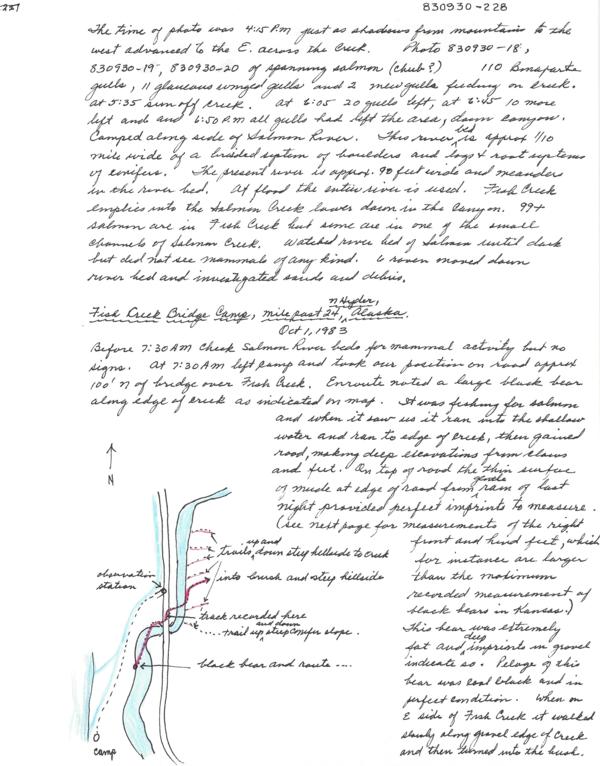 227
830930-228
The time of photo was 4:15 P.M just as shadows from mountains to the
west advanced to the E. across the Creek. Photo 830930-18,
830930-19, 830930-20 of spawning salmon (chub?) 110 Bonaparte
gulls, 11 glaucous winged gulls and 2 mew gulls feeding on creek.
at 5:35 sun off creek. at 6:05 20 gulls left, at 6:45 10 more
left and 6:50 P.M all gulls had left the area, down canyon.
Camped along side of Salmon River. This river bed is approx 1/10
mile wide of a braided system of boulders and logs & root systems
of conifers. The present river is approx. 90 feet wide and meanders
in the river bed. At flood the entire river is used. Fish Creek
emplies into the Salmon Creek lower down in the Canyon. 99+
Salmon are in Fish Creek but some are in one of the small
channels of Salmon Creek. Watched river bed of Salmon until dark
but did not see mammals of any kind. 6 raven moved down
river bed and investigated sands and debris.
Fish Creek Bridge Camp, mile post 24, n Hyder, Alaska.
Oct 1, 1983
Before 7:30 AM Check Salmon River beds for mammal activity but no
signs. At 7:30 AM left camp and took our position on road approx
100' N of bridge over Fish Creek. Enroute noted a large black bear
along edge of creek as indicated on map. It was fishing for salmon
and when it saw us it ran into the shallow
water and ran to edge of creek, then gained
road, making deep excavations from claws
and feet. On top of road the thin surface
of mud at edge of road from gentle rain of last
night provided perfect imprints to measure.
(see next page for measurements of the right
front and hind feet, which
for instance are larger
than the maximum
recorded measurement of
black bears in Kansas.)
This bear was extremely
fat and deep imprints in gravel
indicate so. Pelage of this
bear was coal black and in
perfect condition. When on
E side of Fish Creek it walked
slowly along gravel edge of Creek
and then turned into the bush.
N
trails up and down steep hillside to creek
observation
station
into brush and steep hillside
track recorded here
trail up and down steep conifer slope.
black bear and route ....
camp